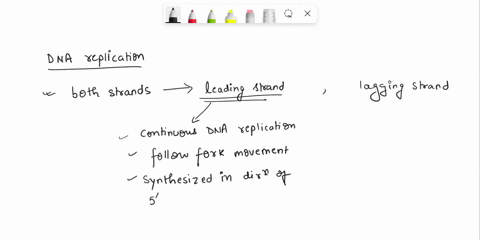 DNA replication
both strands → leading strand , lagging strand
continuous DNA replication
follow fork movement
synthesized in dirⁿ of
5'